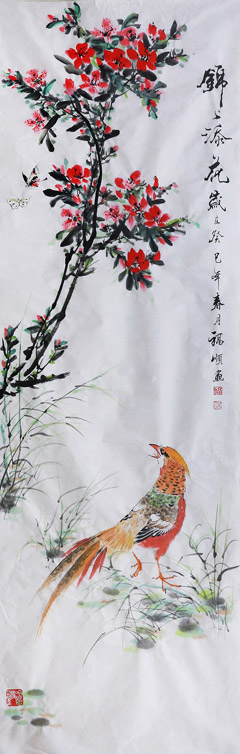 錦上添花歲在癸巳年春月福順画